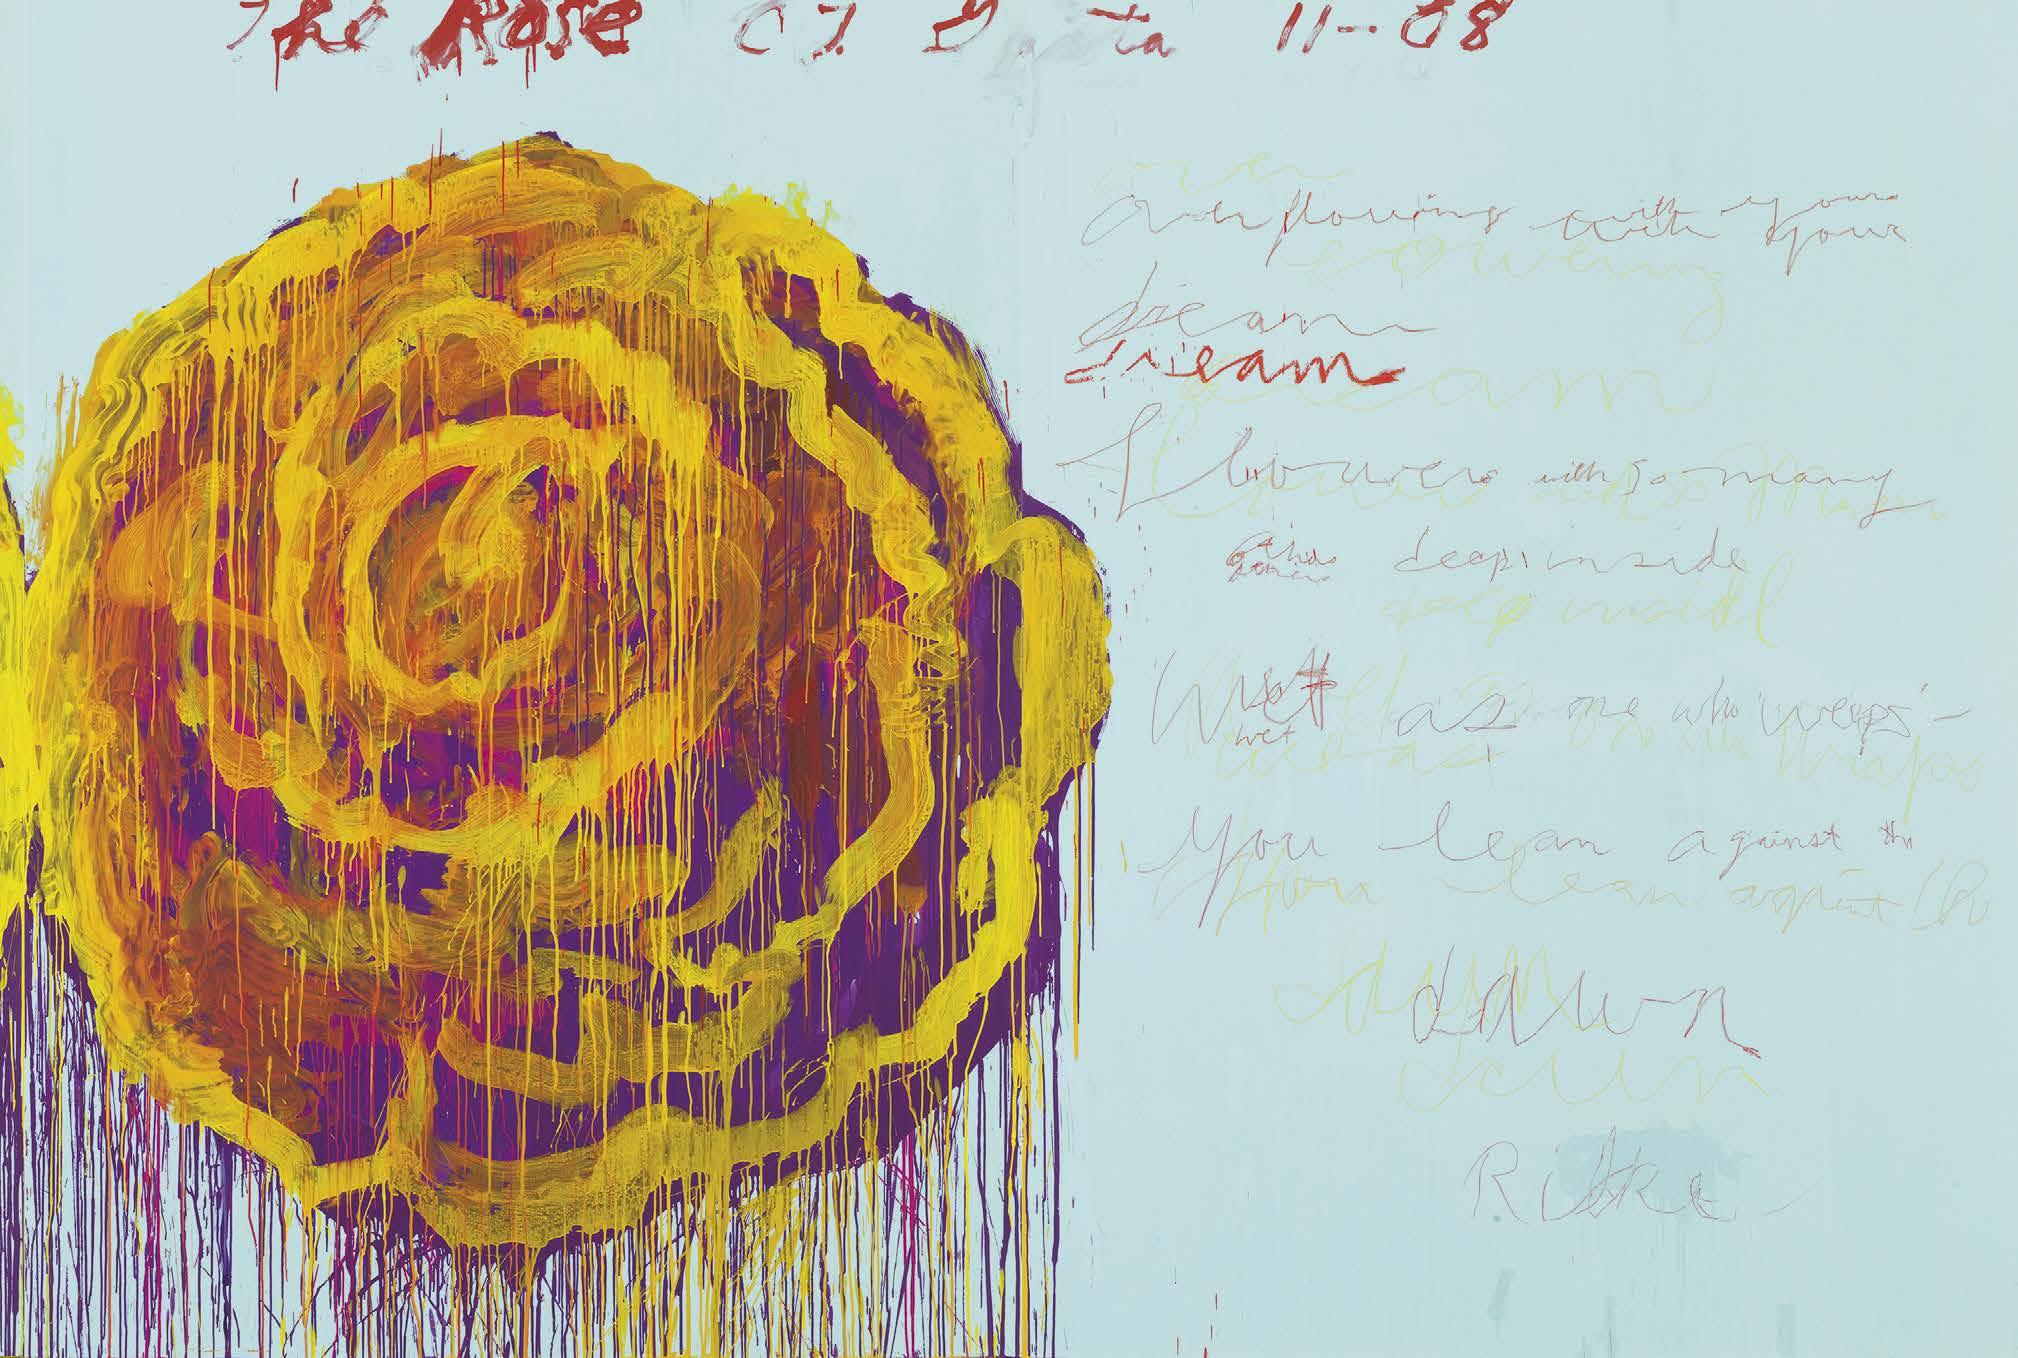 The Rose CT Gaeta 11-08
over
overflowing with your
with your
flowering
dream
dream
dream
flowers with so many
others deep inside
others
deep inside
wet as one who weeps
wet
wet as one who weeps
you lean against the
you lean against the
dawn
dawn
dawn
Rilke